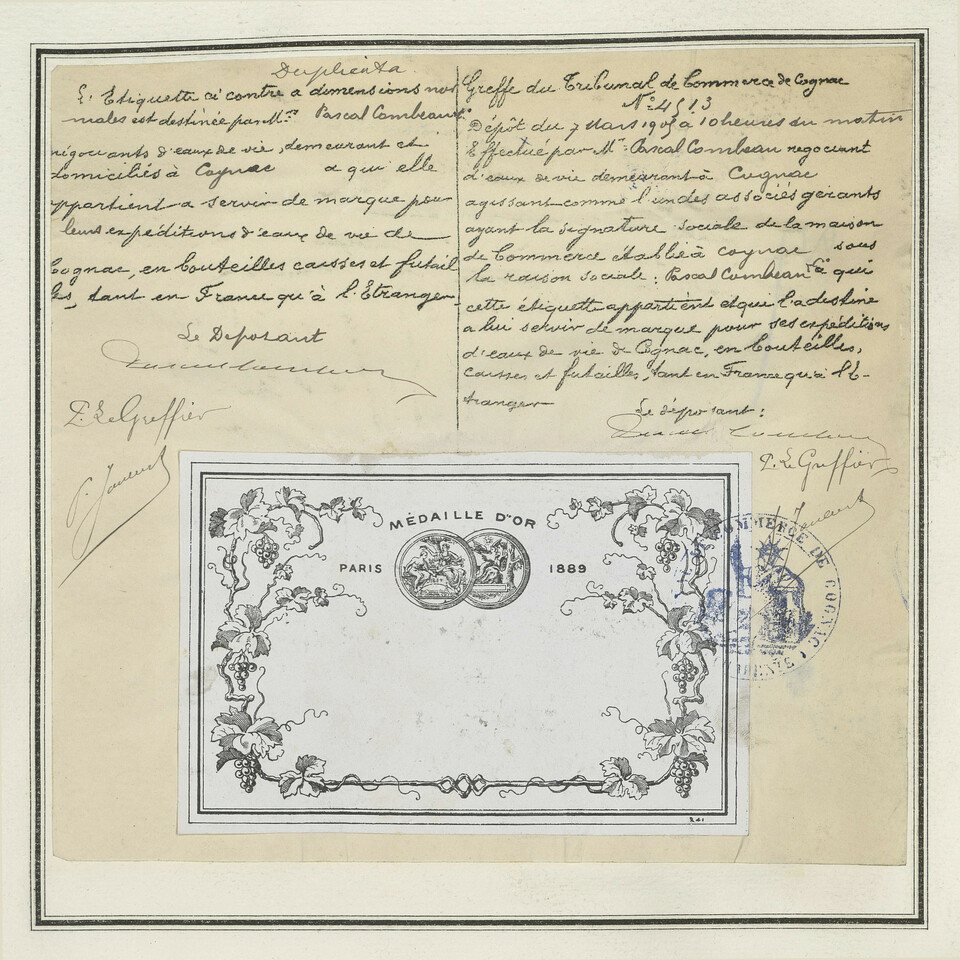 Duplicata
L'Etiquette ci contre a dimensions nor
males est destinée par Mrs Pascal Combeau & Cie
négociants d'eaux de vie, demeurant et
domiciliés à Cognac a qui elle
appartient a servir de marque pour
leurs expéditions d'eaux de vie de
Cognac, en bouteilles caisses et futail
les, tant en France qu'à l'Etranger
Le Deposant
P. Le Greffier
Greffe du Tribunal de Commerce de Cognac
No 4513
Dépôt du 7 Mars 190 à 10 heures du matin
Effectué par Mr Pascal Combeau negociant
d'eaux de vie demeurant à Cognac
agissant comme l'un des associés gérants
ayant la signature sociale de la maison
de Commerce établie à Cognac sous
la raison sociale : Pascal Combeau & Co à qui
cette étiquette appartient et qui l'a destine
a lui servir de marque pour ses expéditions
d'eaux de vie de Cognac, en bouteilles,
caisses et futailles, tant en France qu'à l'E-
tranger
Le déposant :
P. Le Greffier
MÉDAILLE D'OR
PARIS 1889
COMMERCE DE COGNAC